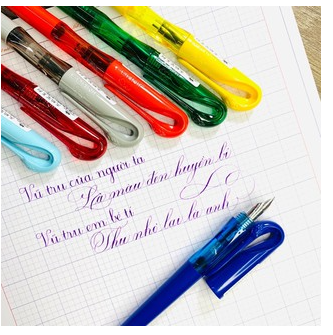 Vũ trụ của người ta
Là màu đen huyền bí
Vũ trụ em bé tí
Thu nhỏ lại là anh